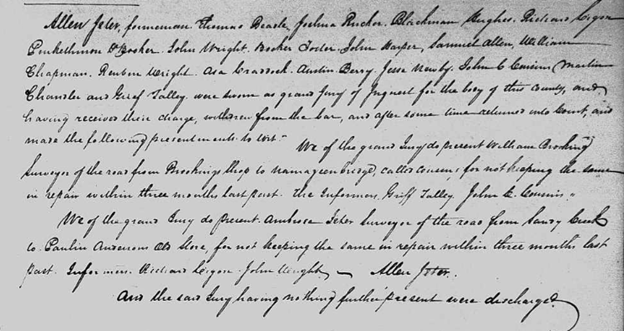 Allen Jeter, foreman. Thomas Beasle, Joshua Rucker. Blackman Hughes. Richard Ligon
Powhethmon D Booker. John Wright. Booker Foster. John Harper, Samuel Allen, William
Chapman. Reuben Wright. Asa Craddock. Austin Berry. Jesse Newby. John C Cousins, Martin
Chandler and Grief Talley. were sworn as grand jury of Inquest for the body of this County, and
having received their charge, withdrew from the bar, and after some time returned into Court, and
made the following presentments to wit"
We of the grand Jury do present William Brooking
Surveyor of the road from Brookings Shop to bridge, called Cousins, for not keeping the same
in repair within three months last past. The Informers Griff Talley. John C. Cousins.
We of the grand Jury do present Ambrose Jeter Surveyor of the road from Sandy Creek
to Paulin Anderson Old Store, for not keeping the same in repair within three months last
past. Informers. Richard Ligon. John Wright — Allen Jeter.
And the said Jury having nothing further present were discharged.